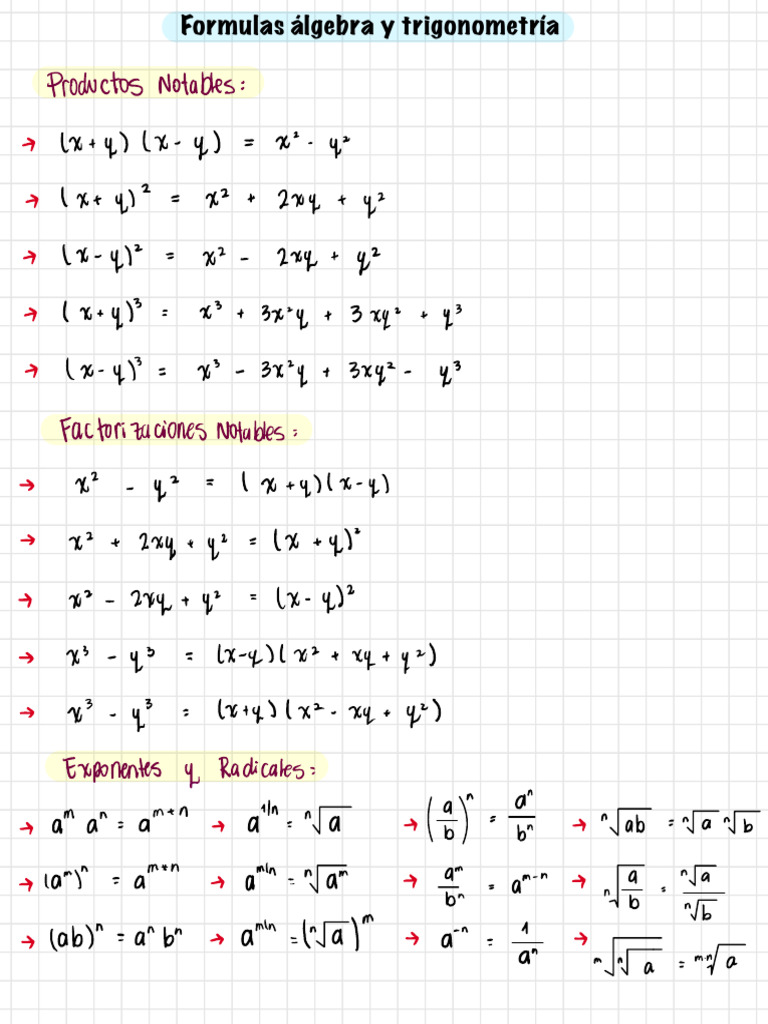 Formulas álgebra y trigonometría
Productos Notables:
→ (x + y) (x - y) = x² - y²
→ (x + y)² = x² + 2xy + y²
→ (x - y)² = x² - 2xy + y²
→ (x + y)³ = x³ + 3x²y + 3xy² + y³
→ (x - y)³ = x³ - 3x²y + 3xy² - y³
Factorizaciones Notables:
→ x² - y² = (x + y)(x - y)
→ x² + 2xy + y² = (x + y)²
→ x² - 2xy + y² = (x - y)²
→ x³ - y³ = (x-y)(x² + xy + y²)
→ x³ - y³ = (x+y)(x² - xy + y²)
Exponentes y Radicales:
→ a^m a^n = a^(m+n) → a^(1/n) = ⁿ√a → (a/b)^n = a^n/b^n → ⁿ√ab = ⁿ√a ⁿ√b
→ (a^m)^n = a^(m+n) → a^(m/n) = ⁿ√a^m → a^m/b^n = a^(m-n) → ⁿ√(a/b) = ⁿ√a/ⁿ√b
→ (ab)^n = a^n b^n → a^(m/n) = (ⁿ√a)^m → a^(-n) = 1/a^n → ᵐ√ⁿ√a = ᵐ·ⁿ√a